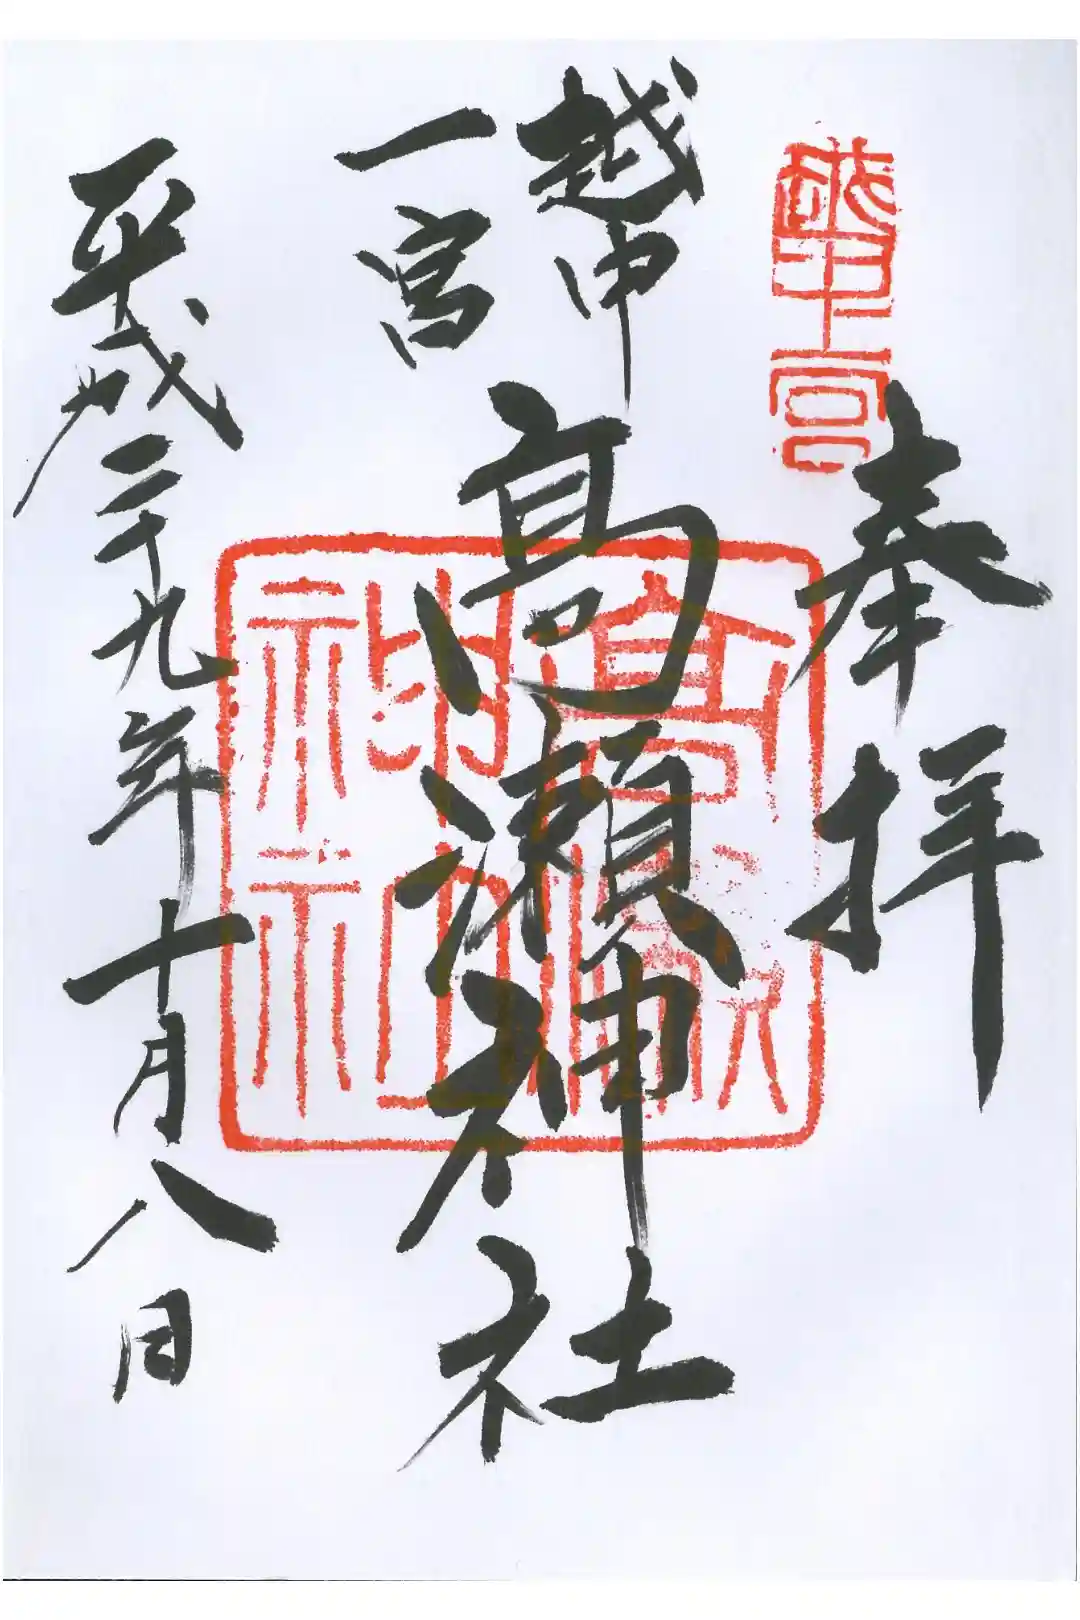 越中一宮
奉拝
越中
一宮
高瀬神社
高瀬神社
平成二十九年十月八日